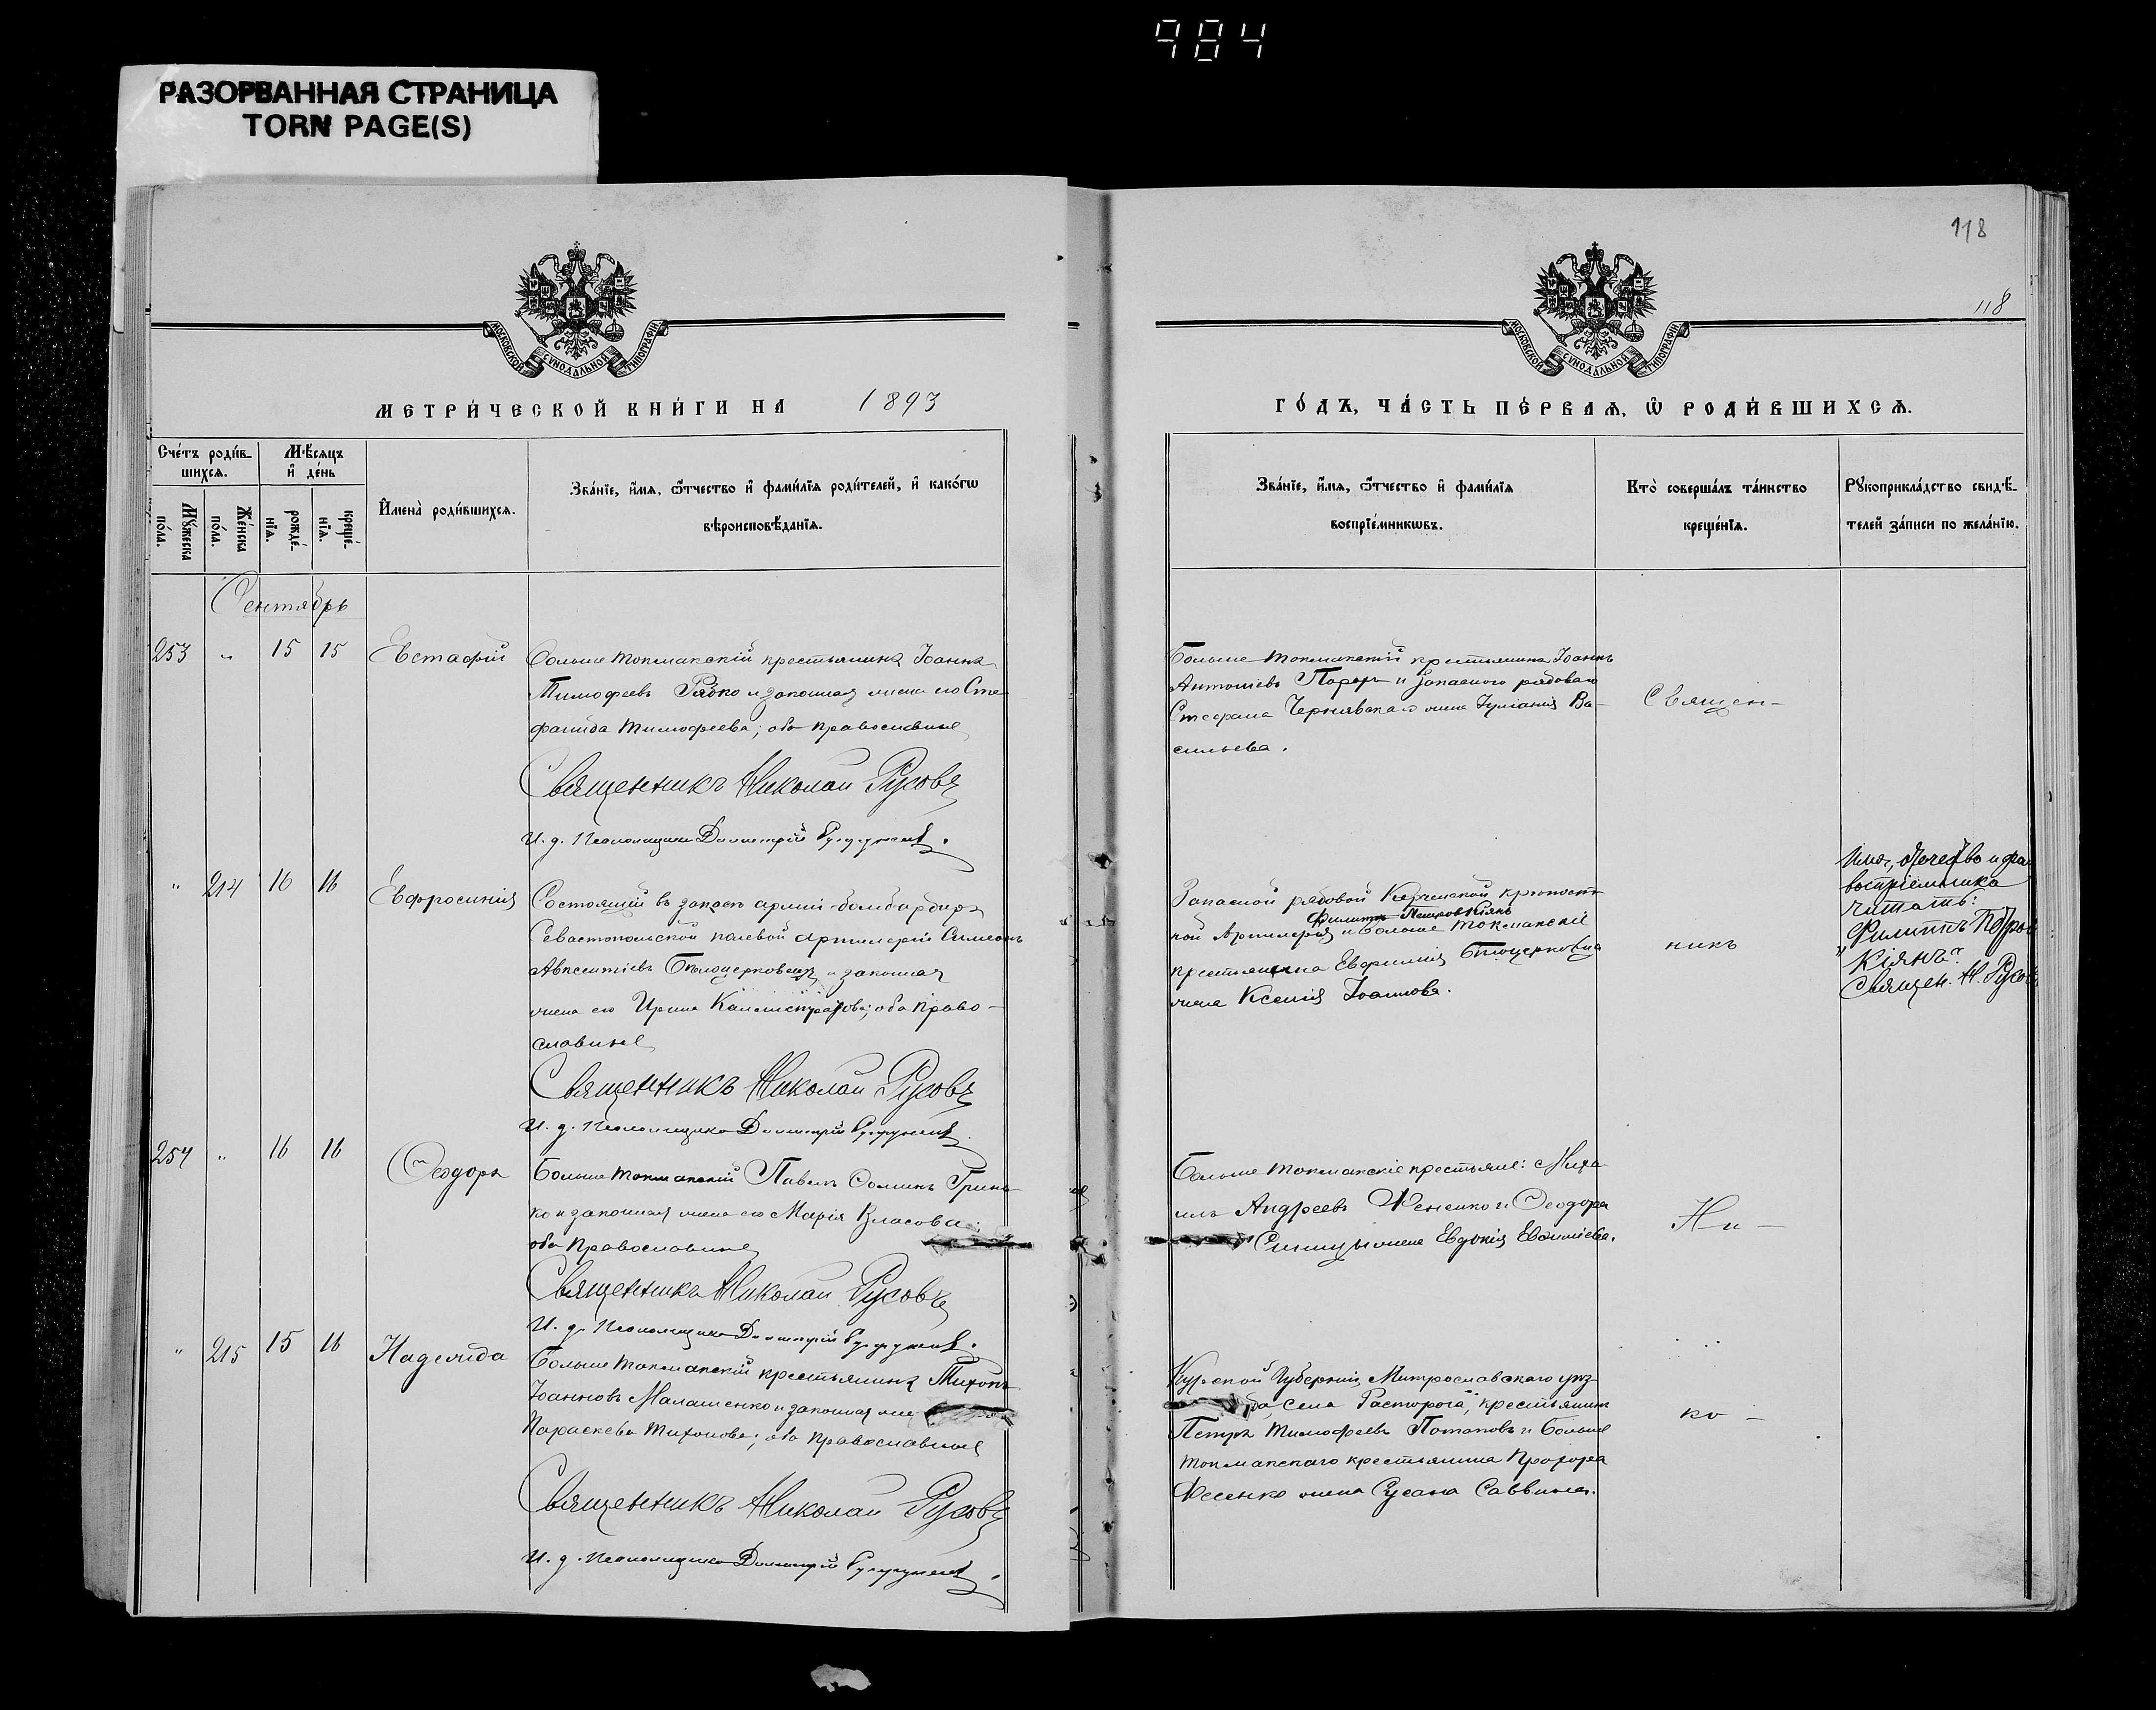 984
РАЗОРВАННАЯ СТРАНИЦА
TORN PAGE(S)
118
118
МОСКОВСКОЙ СѴНОДАЛЬНОЙ ТИПОГРАФІИ
МОСКОВСКОЙ СѴНОДАЛЬНОЙ ТИПОГРАФІИ
МЕТРИ́ЧЕСКОЙ КНИ́ГИ НА 1893
ГО́ДЪ, ЧА́СТЬ ПЕ́РВАѦ, Ѽ РОДИ́ВШИХСѦ.
Сче́тъ роди́в-
шихсѧ.
Мꙋ́жеска
по́ла.
Же́нска
по́ла.
Мѣ́сѧцъ
и҆ де́нь
рожде́-
нїѧ.
креще́-
нїѧ.
И҆мена̀ роди́вшихсѧ.
Зва́нїе, и҆́мѧ, ѻ҆́тчество и҆ фами́лїѧ роди́телей, и҆ како́гѡ
вѣроисповѣ́данїѧ.
Зва́нїе, и҆́мѧ, ѻ҆́тчество и҆ фами́лїѧ
воспрїе́мникѡвъ.
Кто̀ соверша́лъ та́инство
креще́нїѧ.
Рꙋкоприкла́дство свидѣ́-
телей за́писи по жела́нїю.
Сентябрь
253 " 15 15 Евстафій
Больше Токмакскій крестьянинъ Іоаннъ
Тимофеевъ Рябко и законная жена его Сте-
фанида Тимофеева; оба православные
Священникъ Николай Русовъ
И. д. Псаломщика Димитрій
Больше Токмакскій крестьянинъ Іоаннъ
Антоніевъ и запасного рядоваго
Стефана Чернявскаго жена Іуліанія Ва-
сильева.
Священ-
" 214 16 16 Евфросинія
Состоящій въ запасѣ арміи бомбардиръ
Севастопольской полевой артилеріи Симеонъ
Авксентіевъ Бѣлоцерковецъ и законная
жена его Ирина Каллистратова; оба право-
славные
Священникъ Николай Русовъ
И. д. Псаломщика Димитрій
Запасной рядовой Керченской крѣпост-
Филиппъ Петровъ Кіянъ
ной Артилеріи и Больше Токмакскіе
крестьянина Евфимія Бѣлоцерковца
жена Ксенія Іоаннова.
никъ
Имя, отчество и фа
воспріемника
читать:
"Филиппъ Петров
Кіянъ".
Священ. Н. Русовъ
254 " 16 16 Ѳеодоръ
Больше Токмакскій Павелъ Ѳоминъ Гринь-
ко и законная жена его Марія Власова;
оба православные
Священникъ Николай Русовъ
И. д. Псаломщика Димитрій
Больше Токмакскіе крестьяне: Миха-
илъ Андреевъ Фененко и Ѳеодора
Синицы жена Евдокія Евѳиміева.
Ни-
" 215 15 16 Надежда
Больше Токмакскій крестьянинъ Тихонъ
Іоанновъ Малашенко и законная же
Параскева Тихонова; оба православные
Священникъ Николай Русовъ
И. д. Псаломщика Димитрій
Курской Губерніи, Митрославскаго уѣз-
да, села Расторога, крестьянинъ
Петръ Тимофеевъ Потаповъ и Больше
Токмакскаго крестьянина Прохора
Фесенко жена Сусана Саввина.
ко-